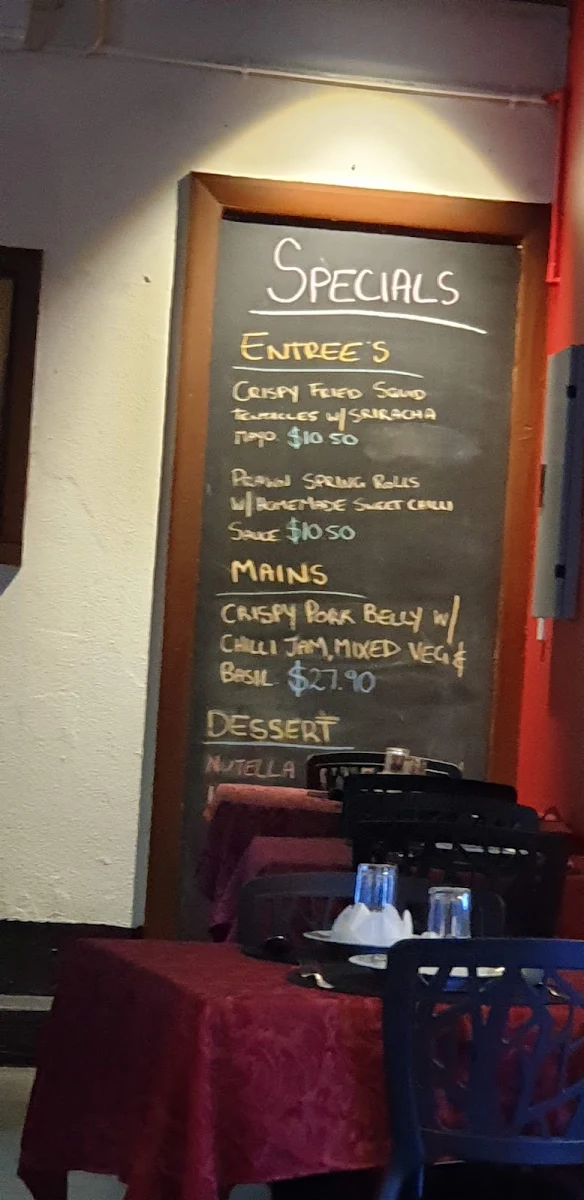 SPECIALS
ENTREE'S
CRISPY FRIED SQUID
TENTACLES W/ SRIRACHA
MAYO $10.50
PRAWN SPRING ROLLS
W/ HOMEMADE SWEET CHILLI
SAUCE $10.50
MAINS
CRISPY PORK BELLY W/
CHILLI JAM, MIXED VEG &
BASIL $27.90
DESSERT
NUTELLA